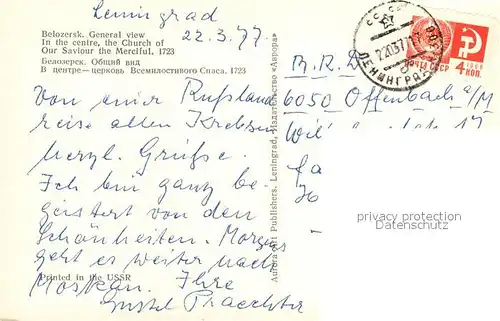 Leningrad
22.3.77
Belozersk. General view
In the centre, the Church of
Our Saviour the Merciful, 1723
Белозерск. Общий вид
В центре — церковь Всемилостивого Спаса. 1723
Von einer Rußland
reise allen Krebsen
herzl. Grüße.
Ich bin ganz be-
geistert von den
Schönheiten. Morgen
geht es weiter nach
Moskau. Ihre
Gustel Praechter
Printed in the USSR
Aurora Art Publishers. Leningrad. Издательство «Аврора»
ЛЕНИНГРАД
ПОЧТА СССР
4 коп.
1966
B.R.D.
6050 Offenbach a/M
privacy protection
oldthing.com